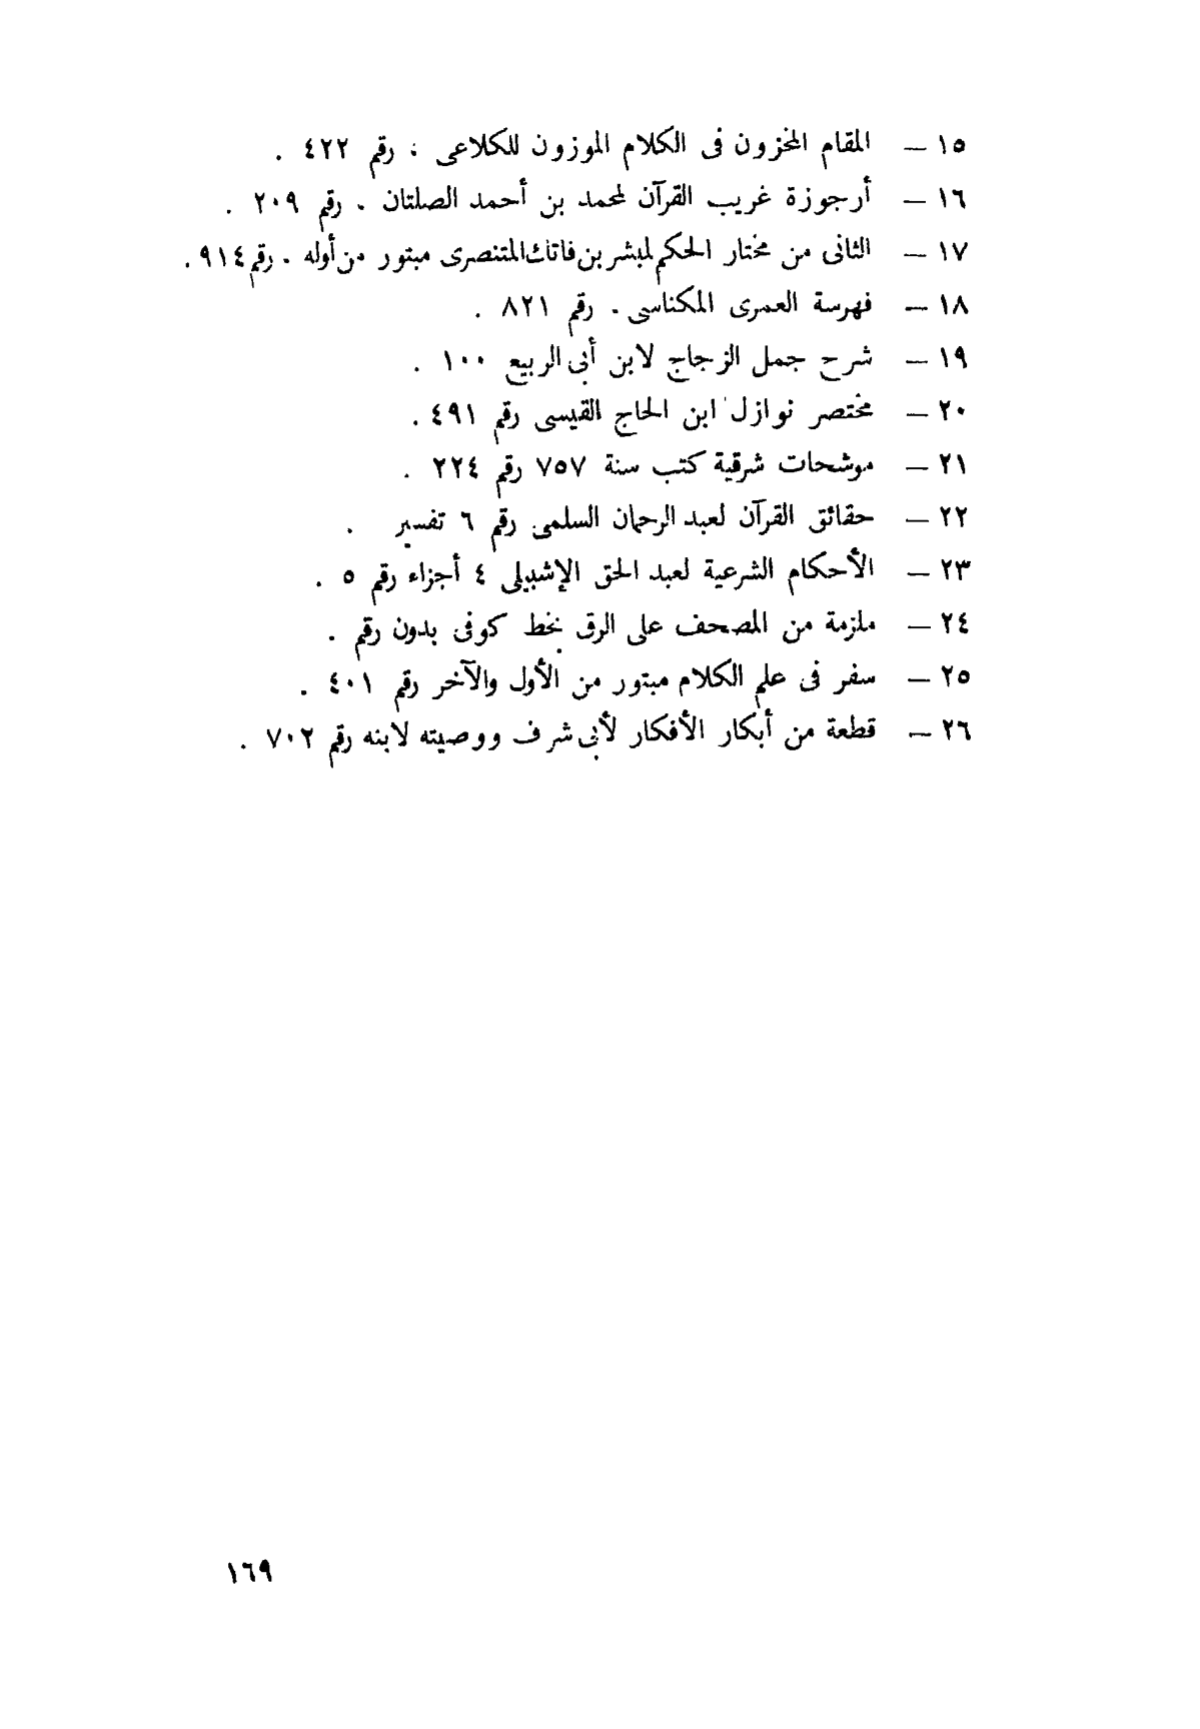 ١٥ — المقام المخزون فى الكلام الموزون للكلاعى ، رقم ٤٢٢ .
١٦ — أرجوزة غريب القرآن لمحمد بن أحمد الصلتان . رقم ٢٠٩ .
١٧ — الثانى من مختار الحكم لمبشر بن فاتك المتنصرى مبتور من أوله . رقم ٩١٤ .
١٨ — فهرسة العمرى المكناسى . رقم ٨٢١ .
١٩ — شرح جمل الزجاج لابن أبى الربيع ١٠٠ .
٢٠ — مختصر نوازل ابن الحاج القيسى رقم ٤٩١ .
٢١ — موشحات شرقية كتب سنة ٧٥٧ رقم ٢٢٤ .
٢٢ — حقائق القرآن لعبد الرحمان السلمى رقم ٦ تفسير .
٢٣ — الأحكام الشرعية لعبد الحق الإشبيلى ٤ أجزاء رقم ٥ .
٢٤ — ملزمة من المصحف على الرق بخط كوفى بدون رقم .
٢٥ — سفر فى علم الكلام مبتور من الأول والآخر رقم ٤٠١ .
٢٦ — قطعة من أبكار الأفكار لأبى شرف ووصيته لابنه رقم ٧٠٢ .
١٦٩